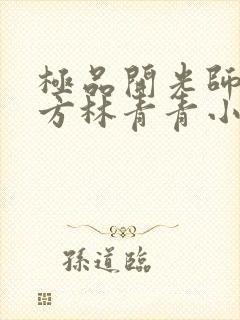 極品開光師
方林青青小
孫道臨